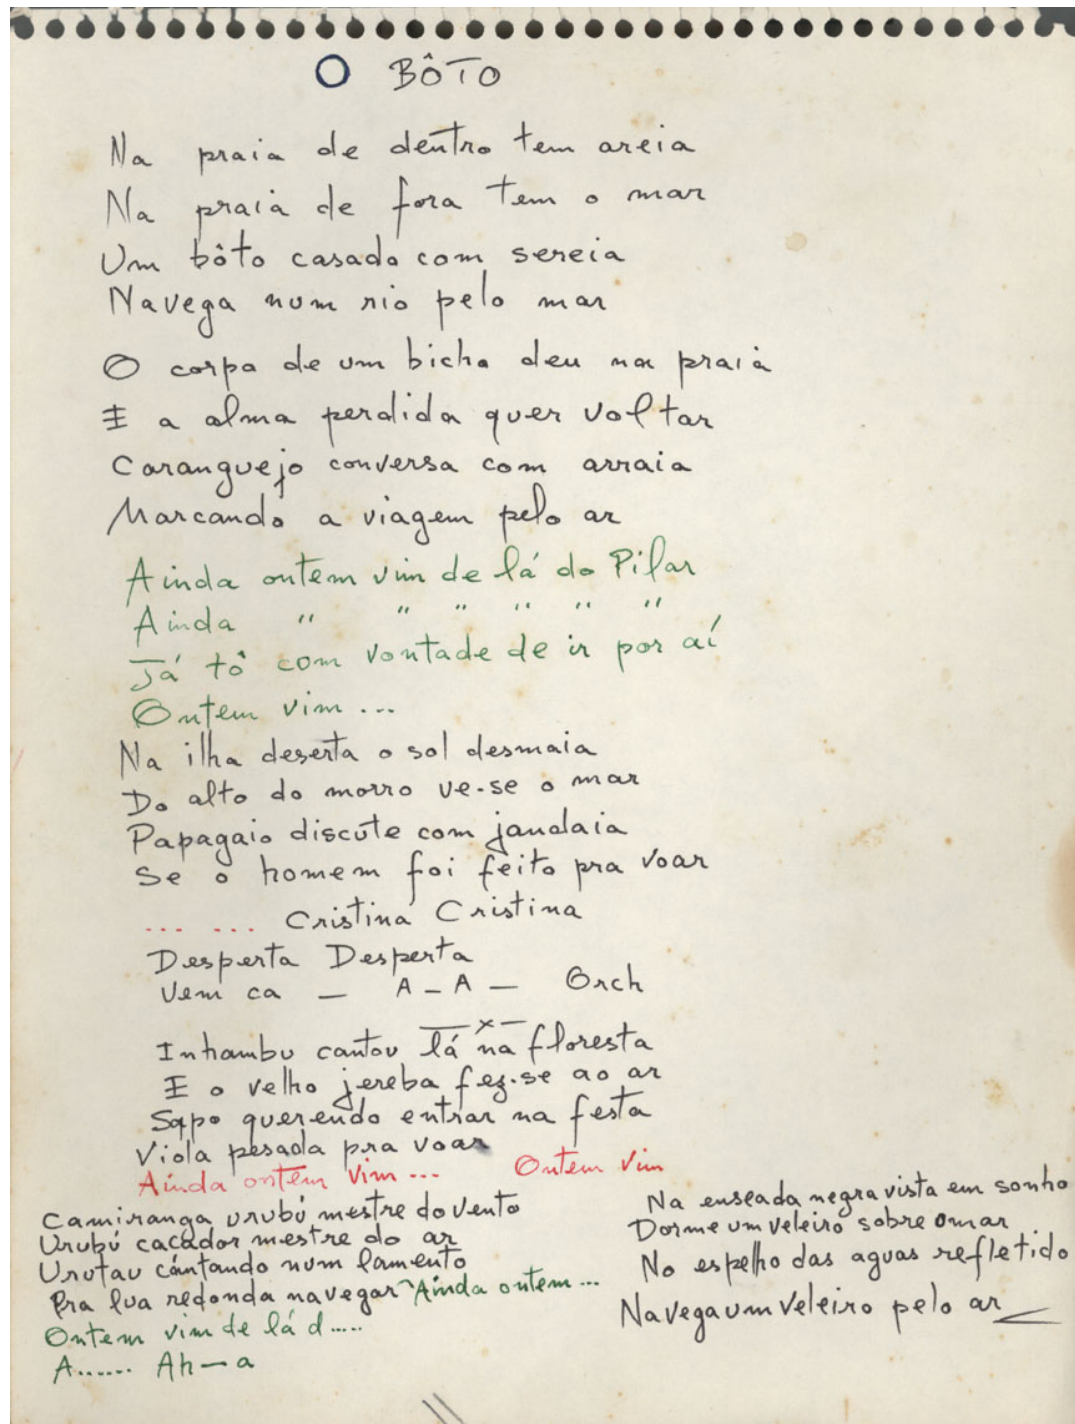 O BÔTO
Na praia de dentro tem areia
Na praia de fora tem o mar
Um bôto casado com sereia
Navega num rio pelo mar
O corpo de um bicho deu na praia
E a alma perdida quer voltar
Caranguejo conversa com arraia
Marcando a viagem pelo ar
Ainda ontem vim de lá do Pilar
Ainda " " " " " "
Já tô com vontade de ir por aí
Ontem vim ...
Na ilha deserta o sol desmaia
Do alto do morro ve-se o mar
Papagaio discute com jandaia
Se o homem foi feito pra voar
... ... Cristina Cristina
Desperta Desperta
Vem ca — A - A — Orch
— x —
Inhambu cantou lá na floresta
E o velho jereba fez-se ao ar
Sapo querendo entrar na festa
Viola pesada pra voar
Ainda ontem vim ... Ontem vim
Camiranga urubú mestre do vento
Urubú caçador mestre do ar
Urutau cantando num lamento
Pra lua redonda navegar Ainda ontem ...
Ontem vim de lá d.....
A....... Ah — a
Na enseada negra vista em sonho
Dorme um veleiro sobre o mar
No espelho das aguas refletido
Navega um veleiro pelo ar